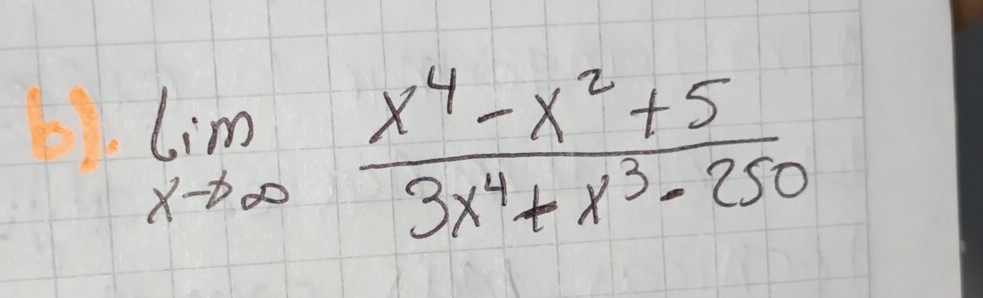 b). lim x→∞ (x⁴ - x² + 5) / (3x⁴ + x³ - 250)